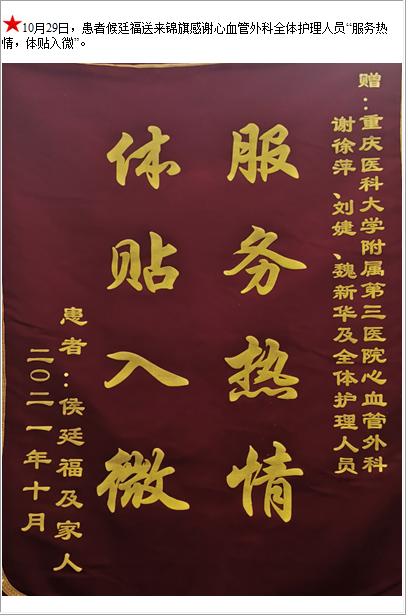 ★10月29日，患者候廷福送来锦旗感谢心血管外科全体护理人员“服务热
情，体贴入微”。
赠：重庆医科大学附属第三医院心血管外科
谢徐萍、刘婕、魏新华及全体护理人员
服务热情
体贴入微
患者：侯廷福及家人
二〇二一年十月